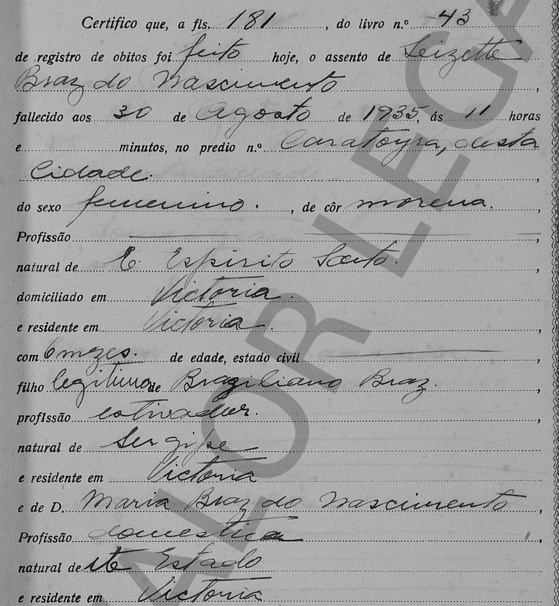 Certifico que, a fls. 181, do livro n.º 43
de registro de obitos foi feito hoje, o assento de Leizette
Braz do Nascimento,
fallecido aos 30 de Agosto de 1935, ás 11 horas
e minutos, no predio n.º Caratoyra, desta
Cidade.,
do sexo femenino., de côr morena.
Profissão,
natural de E. Espirito Santo.,
domiciliado em Victoria.,
e residente em Victoria.,
com 6 mezes. de edade, estado civil,
filho legitimo de Braziliano Braz.,
profissão estivador.,
natural de Sergipe,
e residente em Victoria,
e de D. Maria Braz do Nascimento,
Profissão domestica,
natural de Estado,
e residente em Victoria,
VALOR LEGAL